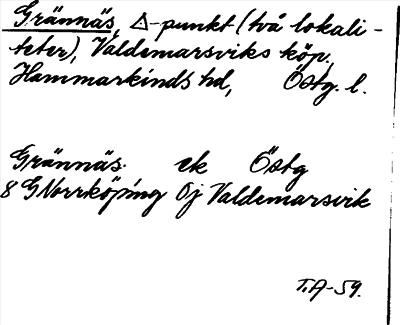 Grännäs, Δ-punkt (två lokali-
teter), Valdemarsviks köp.,
Hammarkinds hd, Östg. l.
Grännäs ek Östg
8 G Norrköping 0j Valdemarsvik
T.A-59.